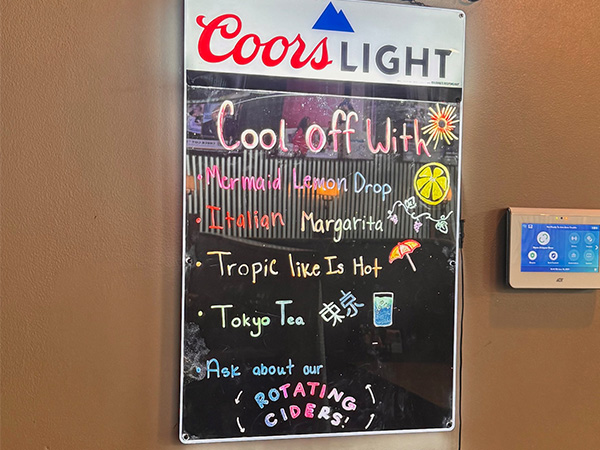 Coors LIGHT
Cool Off With
• Mermaid Lemon Drop
• Italian Margarita
• Tropic like Is Hot
• Tokyo Tea 東京
• Ask about our
ROTATING
CIDERS!